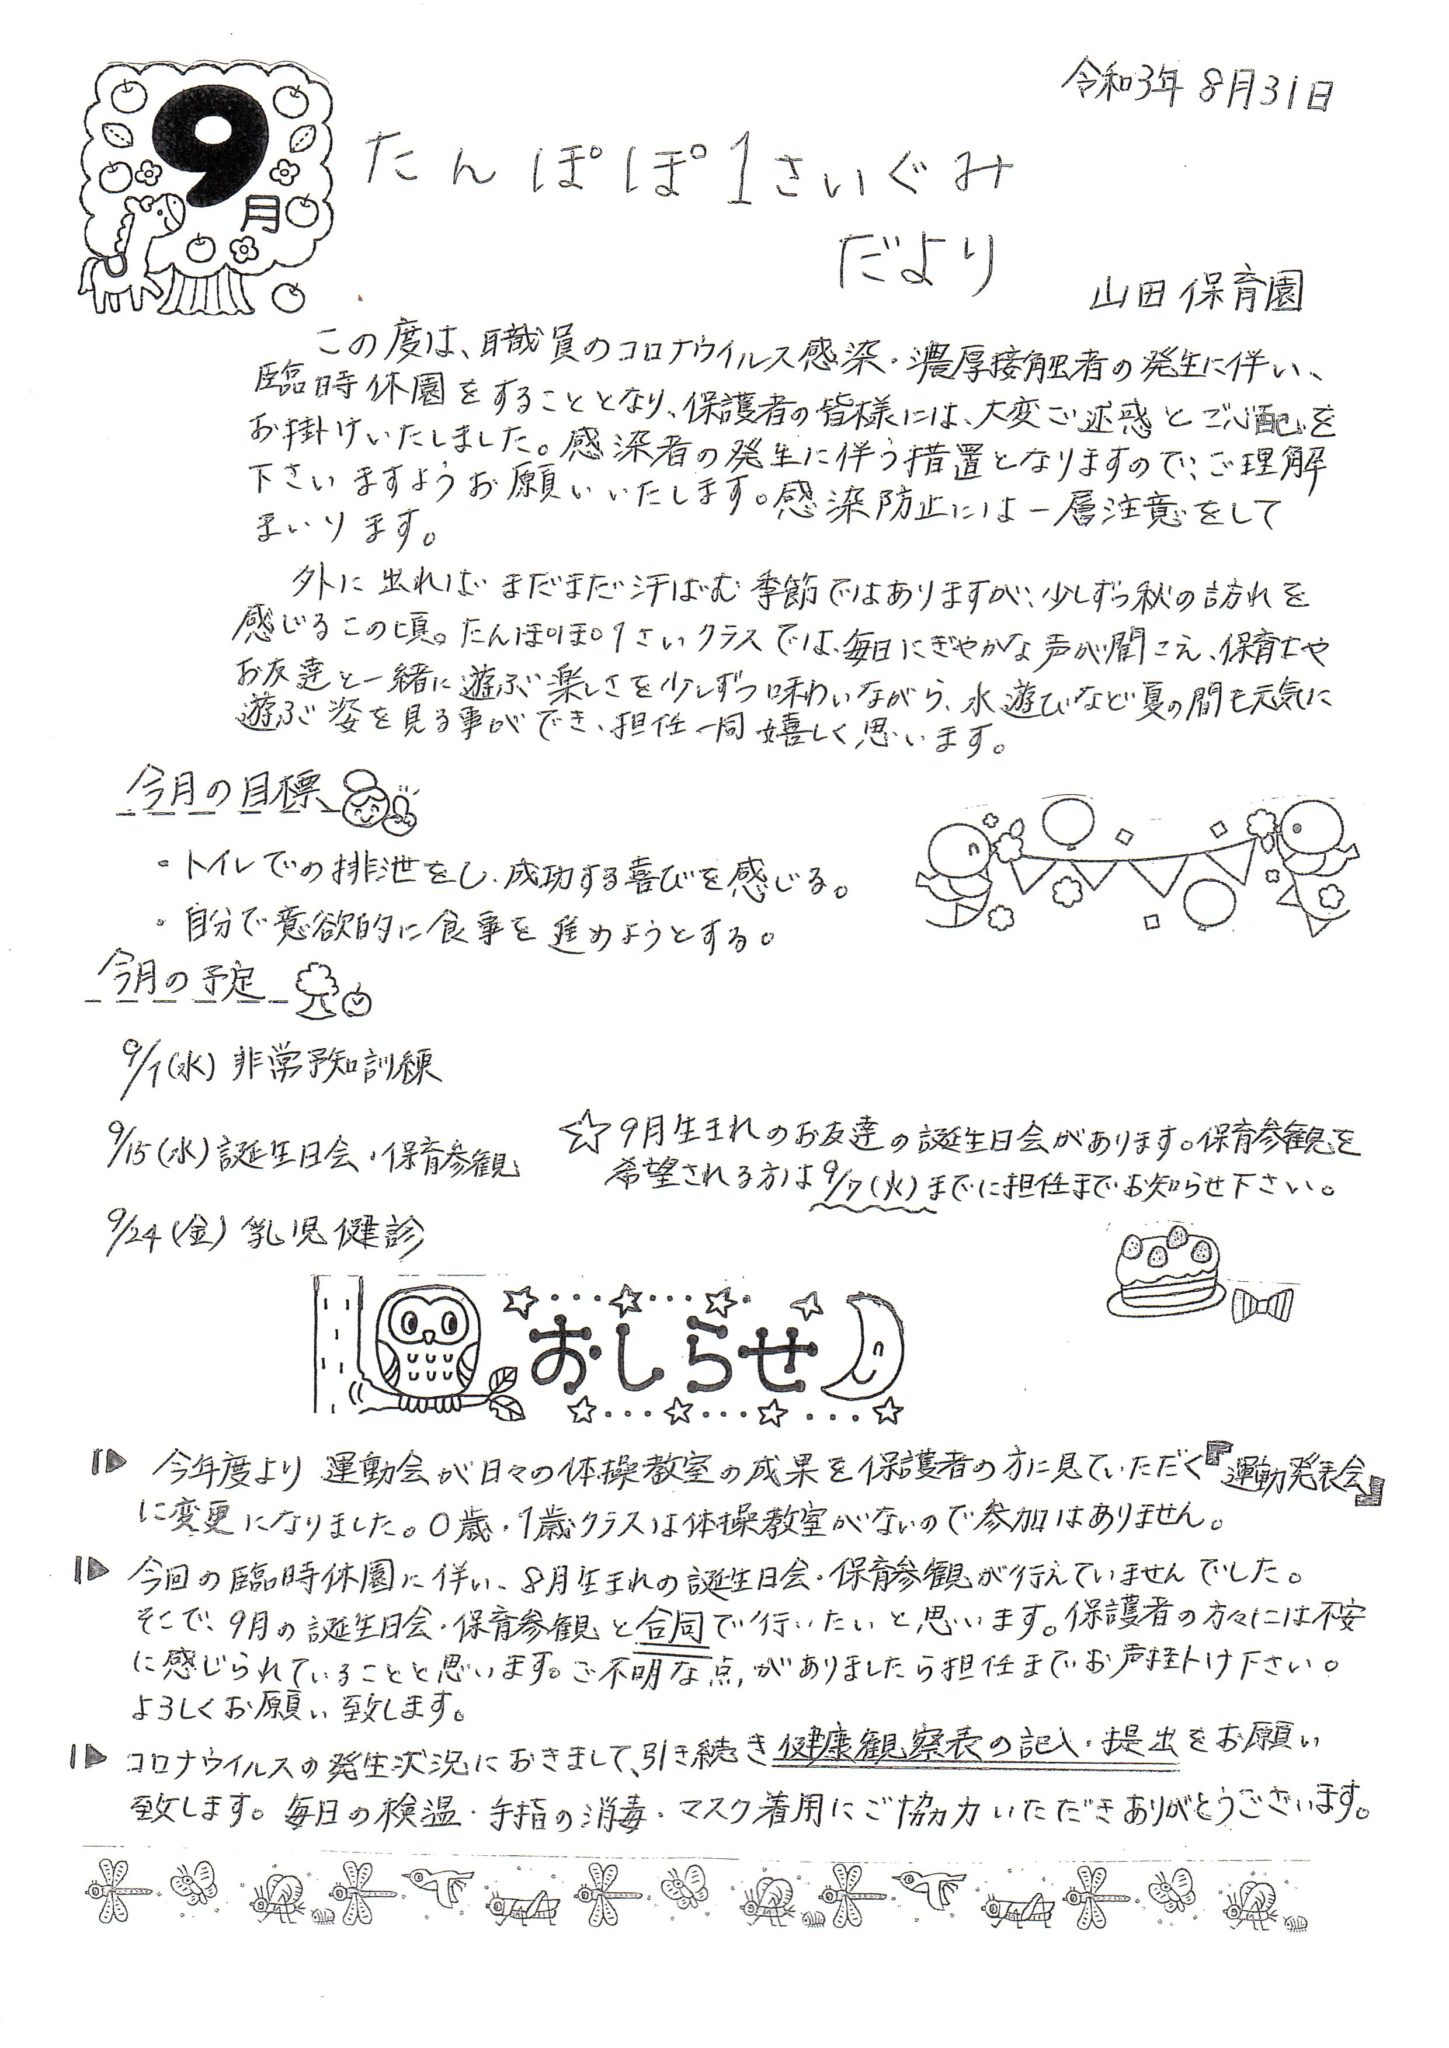 令和3年 8月31日
9月
たんぽぽ1さいぐみ
だより
山田保育園
この度は、職員のコロナウイルス感染・濃厚接触者の発生に伴い、
臨時休園をすることとなり、保護者の皆様には、大変ご迷惑とご心配を
お掛けいたしました。感染者の発生に伴う措置となりますので、ご理解
下さいますようお願いいたします。感染防止には一層注意をして
まいります。
外に出ればまだまだ汗ばむ季節ではありますが、少しずつ秋の訪れを
感じるこの頃。たんぽぽ1さいクラスでは、毎日にぎやかな声が聞こえ、保育士や
お友達と一緒に遊ぶ楽しさを少しずつ味わいながら、水遊びなど夏の間も元気に
遊ぶ姿を見る事ができ、担任一同嬉しく思います。
今月の目標
・トイレでの排泄をし、成功する喜びを感じる。
・自分で意欲的に食事を進めようとする。
今月の予定
9/1(水) 非常予知訓練
9/15(水) 誕生日会・保育参観
☆9月生まれのお友達の誕生日会があります。保育参観を
希望される方は9/7(火)までに担任までお知らせ下さい。
9/24(金) 乳児健診
おしらせ
今年度より運動会が日々の体操教室の成果を保護者の方に見ていただく『運動発表会』
に変更になりました。0歳・1歳クラスは体操教室がないので参加はありません。
今回の臨時休園に伴い、8月生まれの誕生日会・保育参観が行えていませんでした。
そこで、9月の誕生日会・保育参観と合同で行いたいと思います。保護者の方々には不安
に感じられていることと思います。ご不明な点がありましたら担任までお声掛け下さい。
よろしくお願い致します。
コロナウイルスの発生状況におきまして、引き続き健康観察表の記入・提出をお願い
致します。毎日の検温・手指の消毒・マスク着用にご協力いただきありがとうございます。